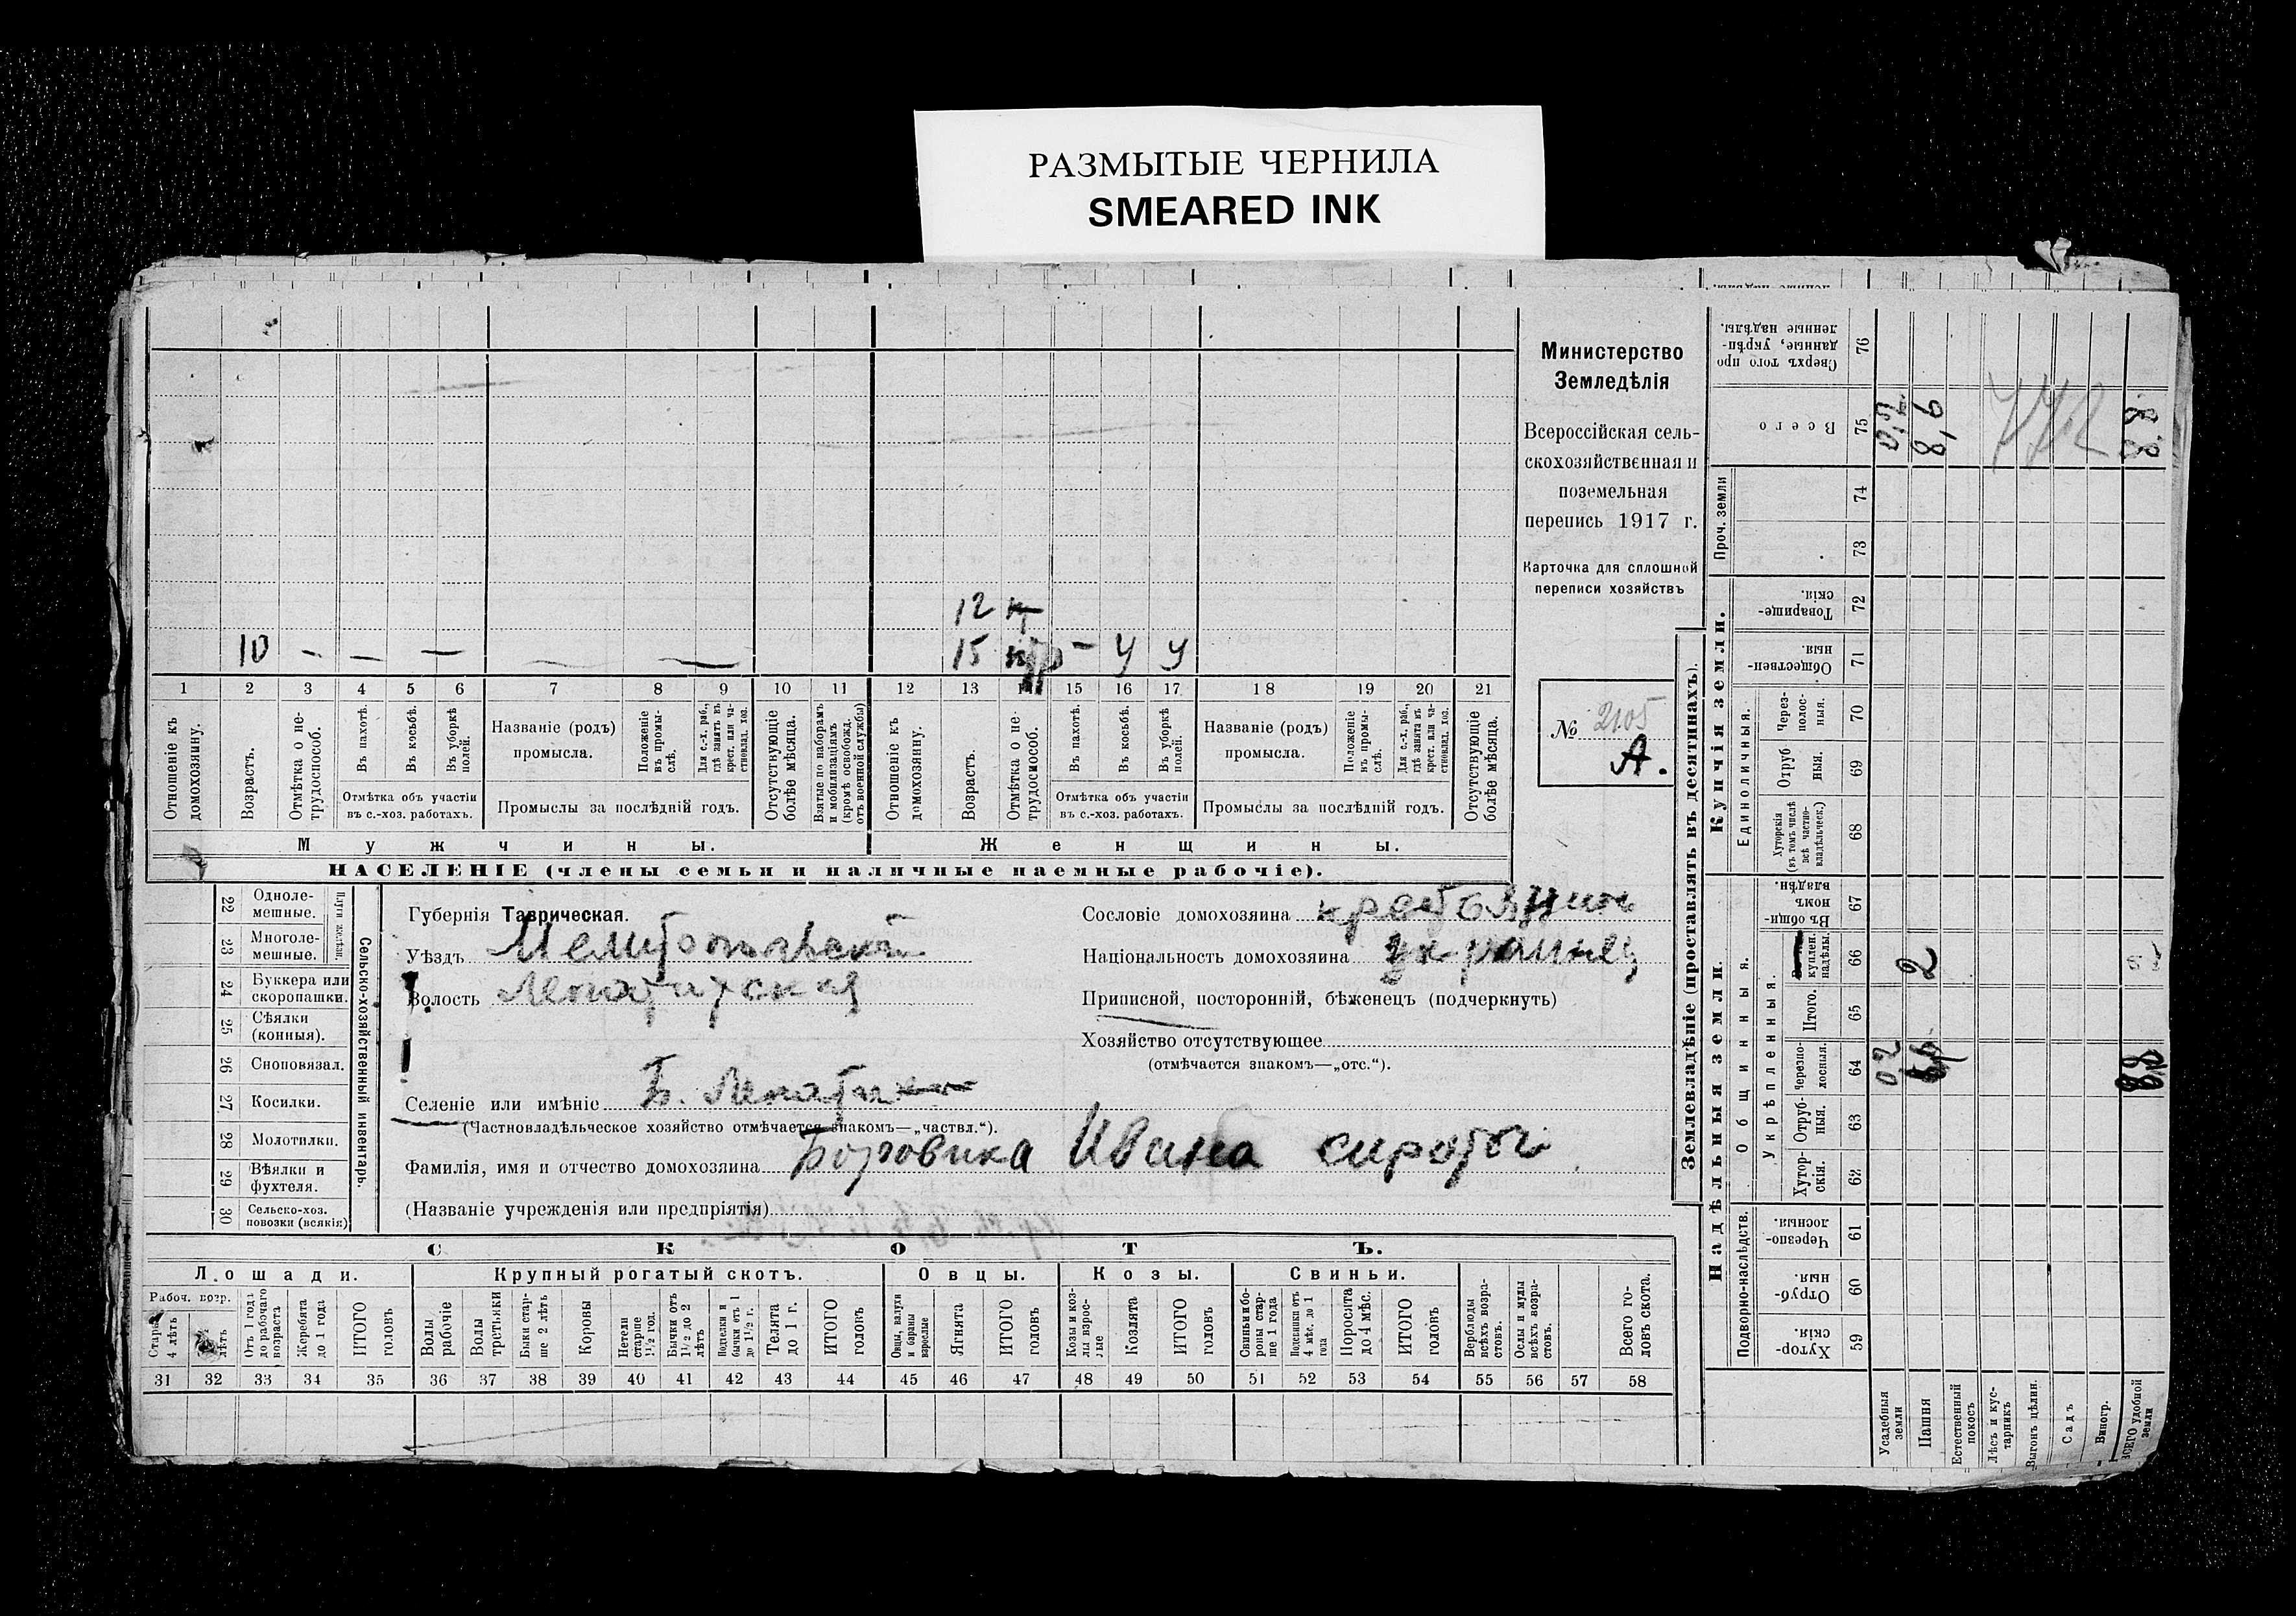 РАЗМЫТЫЕ ЧЕРНИЛА
SMEARED INK
12
10 — — — — — 15 — у у
1 2 3 4 5 6 7 8 9 10 11 12 13 14 15 16 17 18 19 20 21
Отношеніе къ домохозяину.
Возрастъ.
Отмѣтка о не-трудоспособ.
Въ пахотѣ.
Въ косьбѣ.
Въ уборкѣ полей.
Отмѣтка объ участіи
въ с.-хоз. работахъ.
Названіе (родъ)
промысла.
Положеніе въ промы-слѣ.
Для с.-х. раб., гдѣ занятъ въ крест. или ча-стновлад. хоз.
Промыслы за послѣдній годъ.
Отсутствующіе болѣе мѣсяца.
Взятые по наборамъ и мобилизаціямъ (кромѣ освобожд. отъ военной службы)
Отношеніе къ домохозяину.
Возрастъ.
Отмѣтка о не-трудоспособ.
Въ пахотѣ.
Въ косьбѣ.
Въ уборкѣ полей.
Отмѣтка объ участіи
въ с.-хоз. работахъ.
Названіе (родъ)
промысла.
Положеніе въ промы-слѣ.
Для с.-х. раб., гдѣ занятъ въ крест. или ча-стновлад. хоз.
Промыслы за послѣдній годъ.
Отсутствующіе болѣе мѣсяца.
Мужчины. Женщины.
НАСЕЛЕНІЕ (члены семьи и наличные наемные рабочіе).
Министерство
Земледѣлія
Всероссійская сель-
скохозяйственная и
поземельная
перепись 1917 г.
Карточка для сплошной
переписи хозяйствъ
№ 2105
А.
22 Одноле-мешные.
23 Многоле-мешные.
24 Буккера или скоропашки.
25 Сѣялки (конныя).
26 Сноповязал.
27 Косилки.
28 Молотилки.
29 Вѣялки и фухтеля.
30 Сельско-хоз. повозки (всякія)
Сельско-хозяйственный инвентарь.
Губернія Таврическая.
Уѣздъ Мелитопольскій
Волость
Селеніе или имѣніе Б.
(Частновладѣльческое хозяйство отмѣчается знакомъ—„частвл.“).
Фамилія, имя и отчество домохозяина Боровика Ивана сироты
(Названіе учрежденія или предпріятія)
Сословіе домохозяина крестьянин
Національность домохозяина украинец
Приписной, посторонній, бѣженецъ (подчеркнуть)
Хозяйство отсутствующее
(отмѣчается знакомъ—„отс.“).
СКОТЪ.
Лошади. Крупный рогатый скотъ. Овцы. Козы. Свиньи.
Рабоч. возр.
Старше 4 лѣтъ
лѣтъ
Отъ 1 года до рабочаго возраста
Жеребята до 1 года
ИТОГО головъ
Волы рабочіе
Волы третьяки
Быки стар-ше 2 лѣтъ
Коровы
Нетели старше 1½ год.
Бычки отъ 1½ до 2 лѣтъ
Подтелки и бычки отъ 1 до 1½ г.
Телята до 1 г.
ИТОГО головъ
Овцы, валухи и бараны взрослые
Ягнята
ИТОГО головъ
Козы и коз-лы взрос-лые
Козлята
ИТОГО головъ
Свиньи и бо-ровы стар-ше 1 года
Подсвинки отъ 4 мѣс. до 1 года
Поросята до 4 мѣс.
ИТОГО головъ
Верблюды всѣхъ возра-стовъ.
Ослы и мулы всѣхъ возра-стовъ.
Всего го-ловъ скота.
31 32 33 34 35 36 37 38 39 40 41 42 43 44 45 46 47 48 49 50 51 52 53 54 55 56 57 58
Землевладѣніе (проставлять въ десятинахъ).
Купчія земли.
Надѣльныя земли.
Сверхъ того про-данные, укрѣп-ленные надѣлы. 76
Всего 75 0,2 8,6 8.8
Проч. земли 74 73
Товарище-скія. 72
Обществен-ныя. 71
Единоличныя.
Через-полос-ныя. 70
Отруб-ныя. 69
Хуторскія (въ томъ числѣ всѣ частно-владѣльческ.) 68
Общинныя.
Въ общи-номъ владѣн. 67
куплен. надѣлы. 66 2
Укрѣпленныя.
Итого. 65
Черезпо-лосныя. 64 0,2
Отруб-ныя. 63
Хутор-скія. 62
Подворно-наслѣдств.
Черезпо-лосныя. 61
Отруб-ныя. 60
Хутор-скія. 59
Усадебныя земли
Пашня
Естественный покосъ
Лѣсъ и кус-тарникъ
Выгонъ цѣлин.
Садъ
Виногр.
ВСЕГО удобной земли